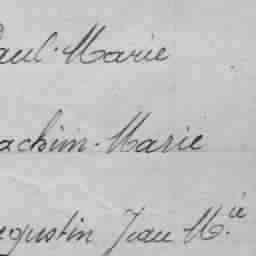 aul-Marie
achim-Marie
ugustin Jean M.ie